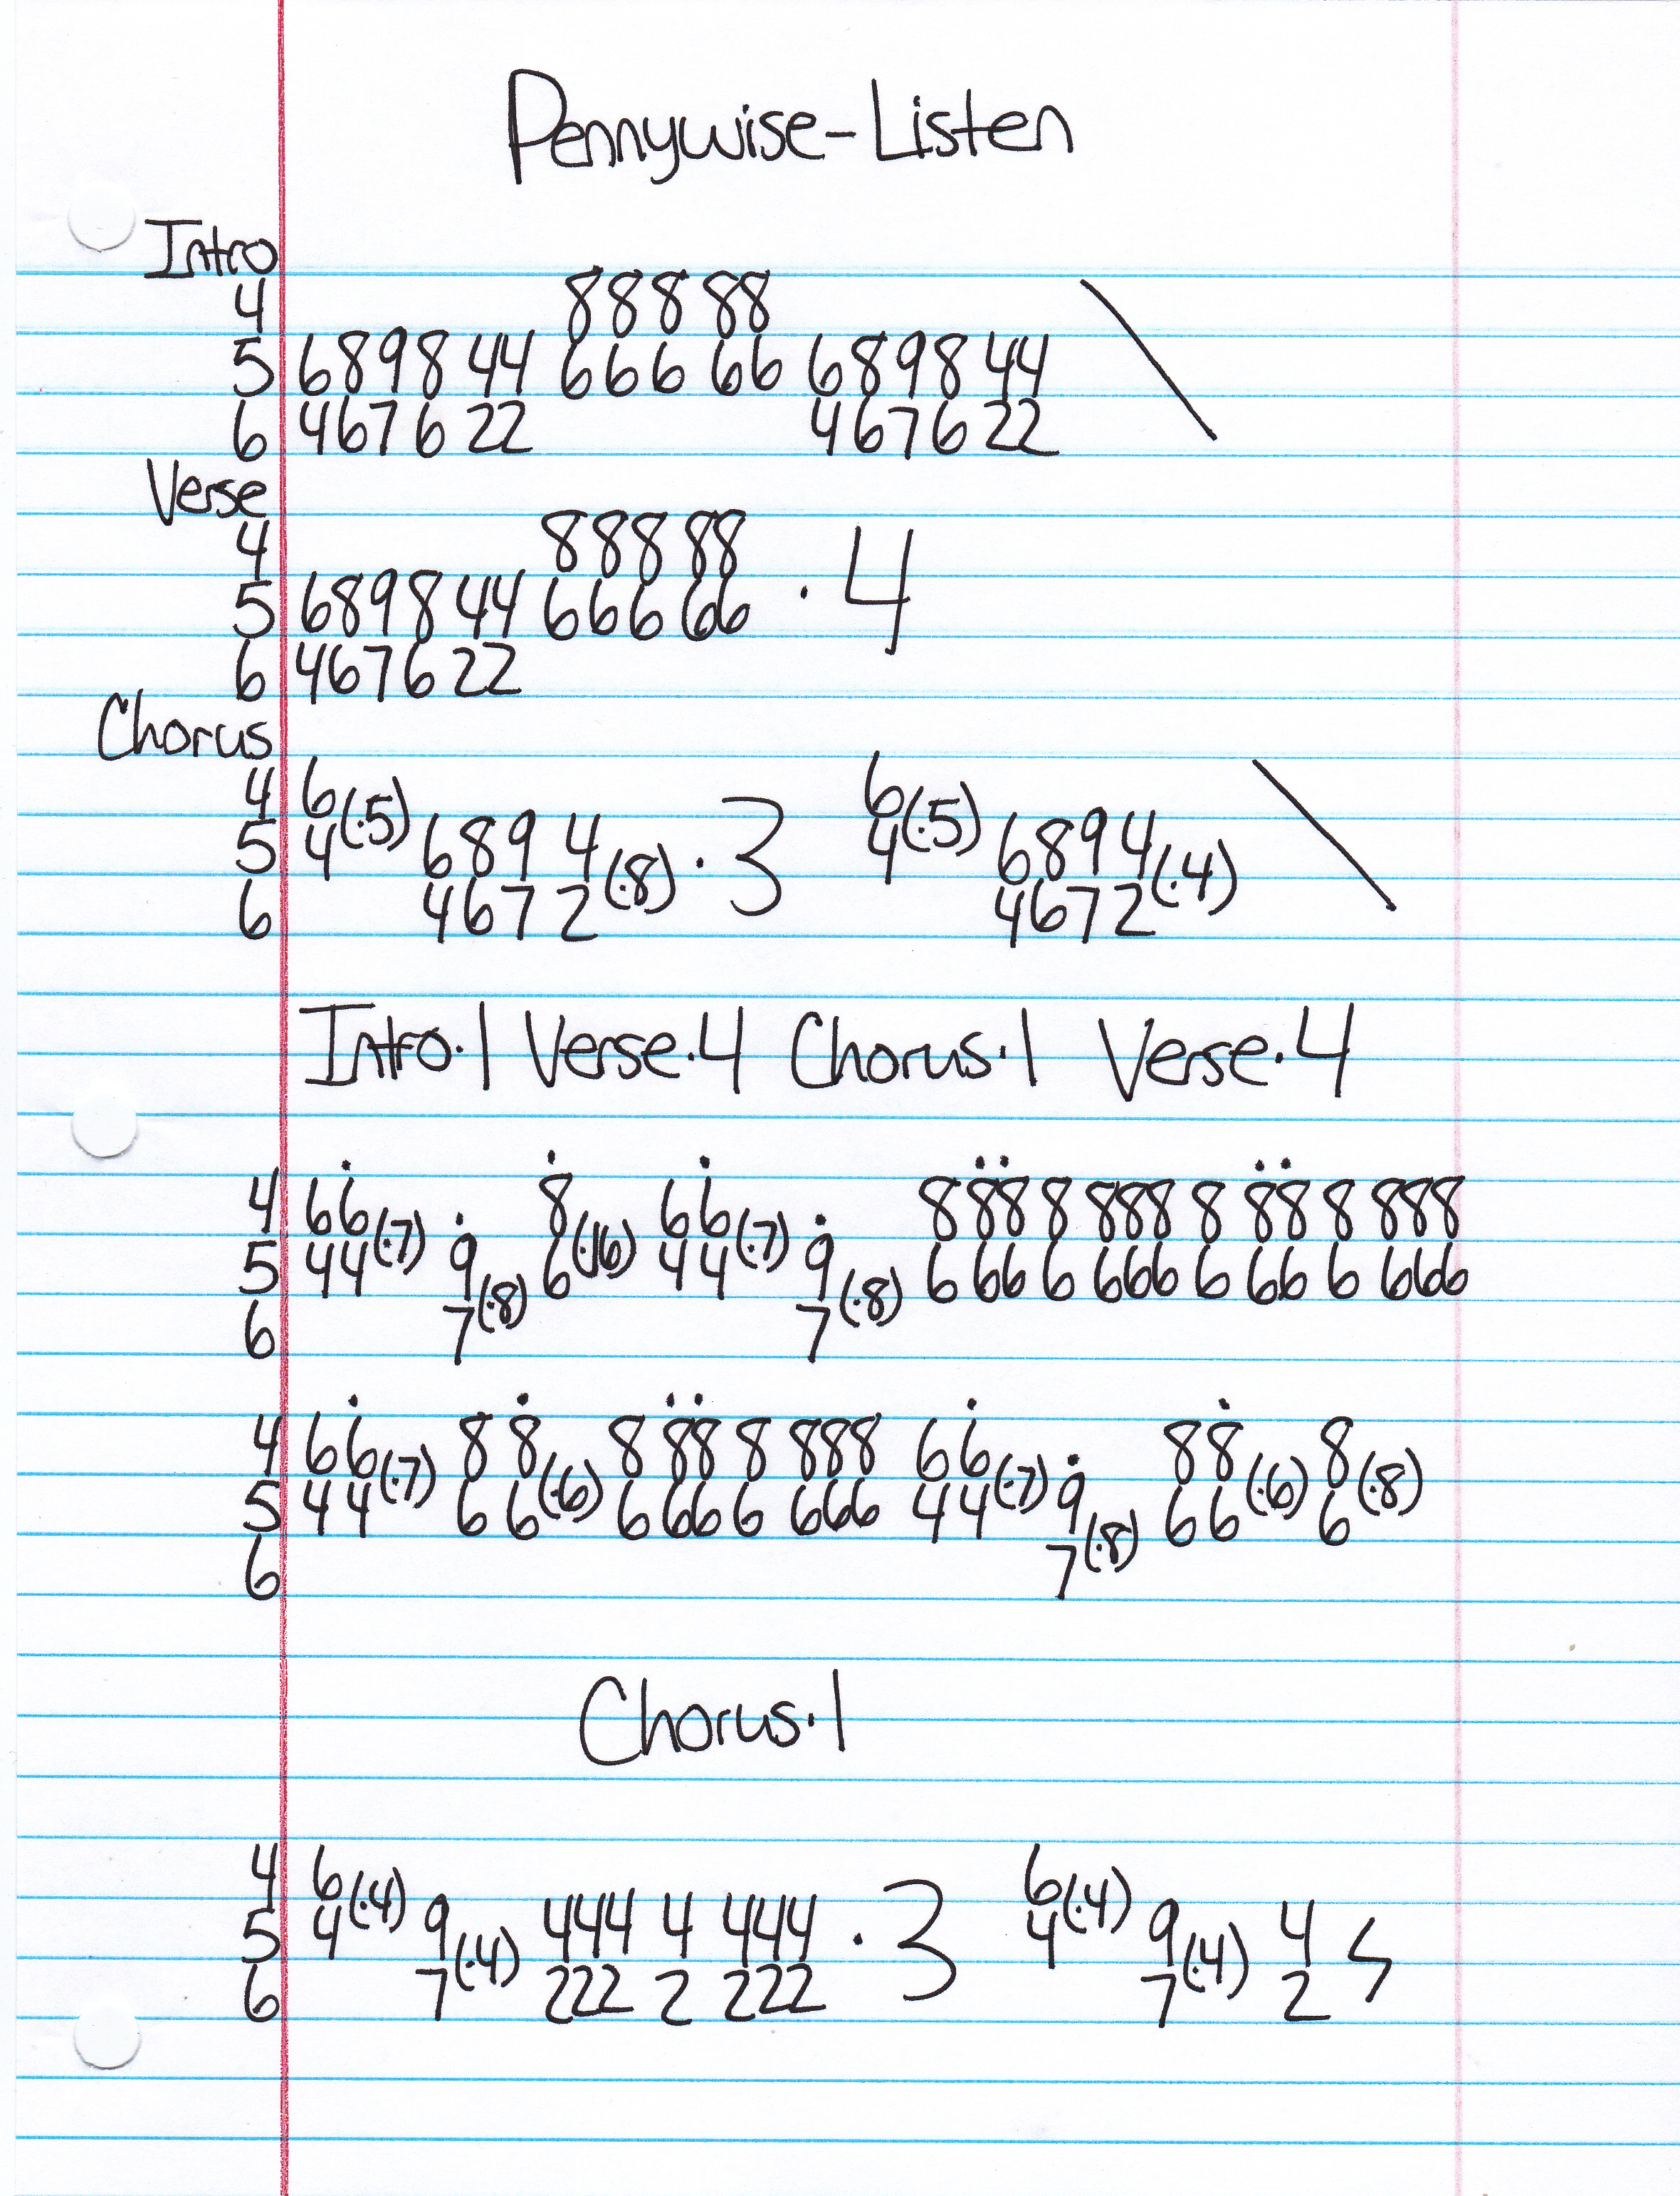 Pennywise-Listen
Intro
4 88888
5 689844 66666 689844 \
6 467622 467622
Verse
4 88888
5 689844 66666 · 4
6 467622
Chorus
4 6 6
5 4(·5) 689 4 (·8) · 3 4(·5) 6894 (·4) \
6 467 2 4672
Intro·1 Verse·4 Chorus·1 Verse·4
4 66̇ 8̇ 66̇ 8 8̇8̇ 8 888 8 8̇8̇ 8 888
5 44(·7) 9̇ 6(·16) 44(·7) 9̇ 6 66 6 666 6 66 6 666
6 7(·8) 7(·8)
4 66̇ 88̇ 8 8̇8̇ 8 888 66̇ 88̇ 8
5 44(·7) 66(·6) 6 66 6 666 44(·7) 9̇ 66(·6) 6(·8)
6 7(·8)
Chorus·1
4 6 6
5 4(·4) 9 444 4 444 · 3 4(·4) 9 4
6 7(·4) 222 2 222 7(·4) 2